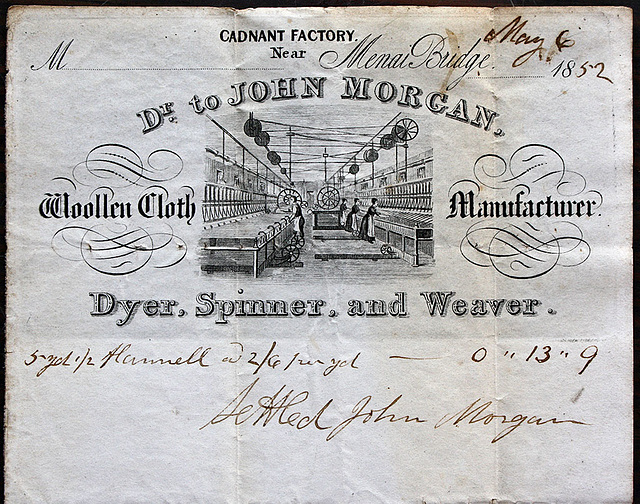 CADNANT FACTORY.
Near Menai Bridge May 6
M 1852
Dr. to JOHN MORGAN,
Woollen Cloth Manufacturer.
Dyer, Spinner, and Weaver.
5 yd 1/2 Flannell @ 2/6 per yd — 0 " 13 " 9
Settled John Morgan